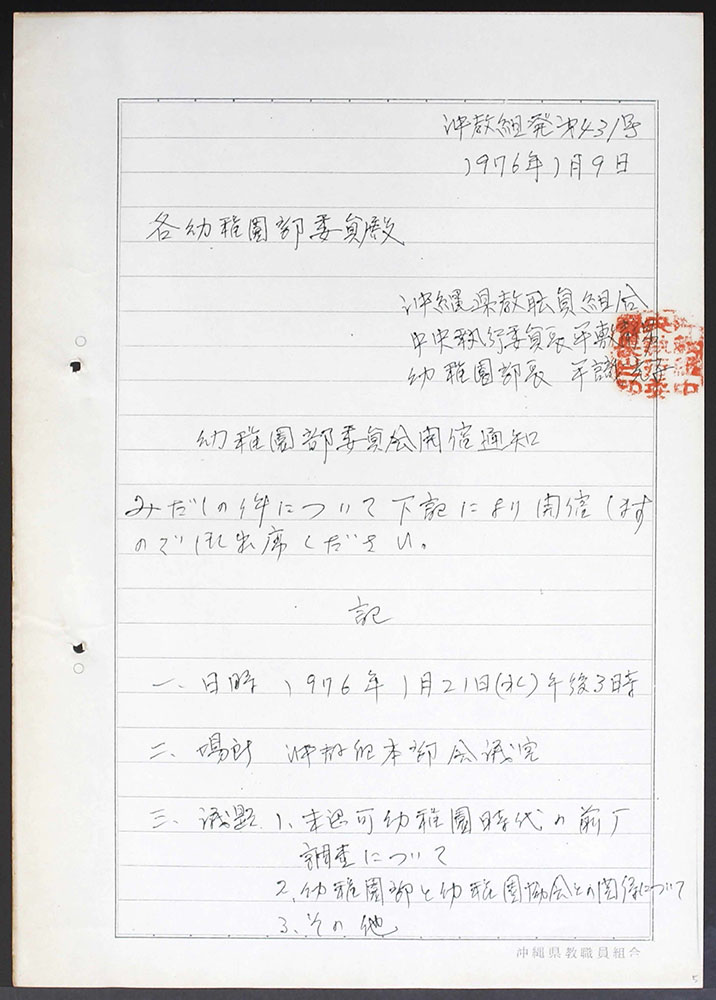 沖教組発第431号
1976年1月9日
各幼稚園部委員殿
沖縄県教職員組合
中央執行委員長 平敷
幼稚園部長 平識
幼稚園部委員会開催通知
みだしの件について下記により開催します
のでご出席ください。
記
一、日時 1976年1月21日(水)午後3時
二、場所 沖教組本部会議室
三、議題 1、未認可幼稚園時代の前
調査について
2、幼稚園部と幼稚園協会との関係について
3、その他
沖縄県教職員組合
5